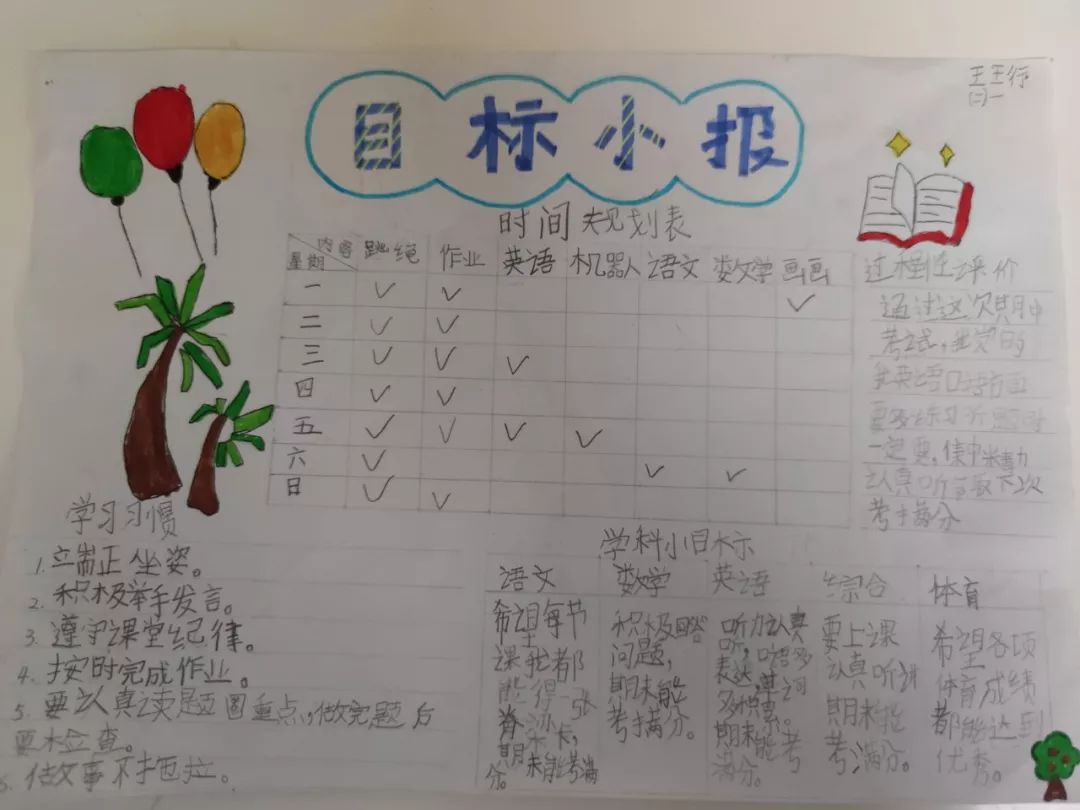 目标小报
王王行
(二)一
时间规划表
内容 跳绳 作业 英语 机器人 语文 数学 画画
星期
一 ✓ ✓ ✓
二 ✓ ✓
三 ✓ ✓ ✓
四 ✓ ✓
五 ✓ ✓ ✓ ✓
六 ✓ ✓ ✓
日 ✓ ✓
过程性评价
通过这次期中
考试,我觉的
我英语口语方面
要多练习听题时
一定要,集中
认真听争取下次
考满分
学习习惯
1. 立端正坐姿。
2. 积极举手发言。
3. 遵守课堂纪律。
4. 按时完成作业。
5. 要认真读题圈重点,做完题后
要检查。
6. 做故事不拖拉。
学科小目标
语文
希望每节
课我都
能得一张
脊梁卡,
期末能考满
分。
数学
积极回答
问题,
期末能
考满分。
英语
听力认真
听,口语多
表达,单词
期末能考
满分。
综合
要上课
认真听讲
期末
考满分。
体育
希望各项
体育成绩
都能达到
优秀。